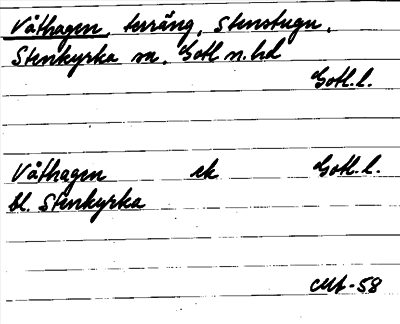 Våthagen, terräng, Stenstugu,
Stenkyrka sn, Gotl. n. hd
Gotl. l.
Våthagen ek Gotl. l.
bl. Stenkyrka
-58